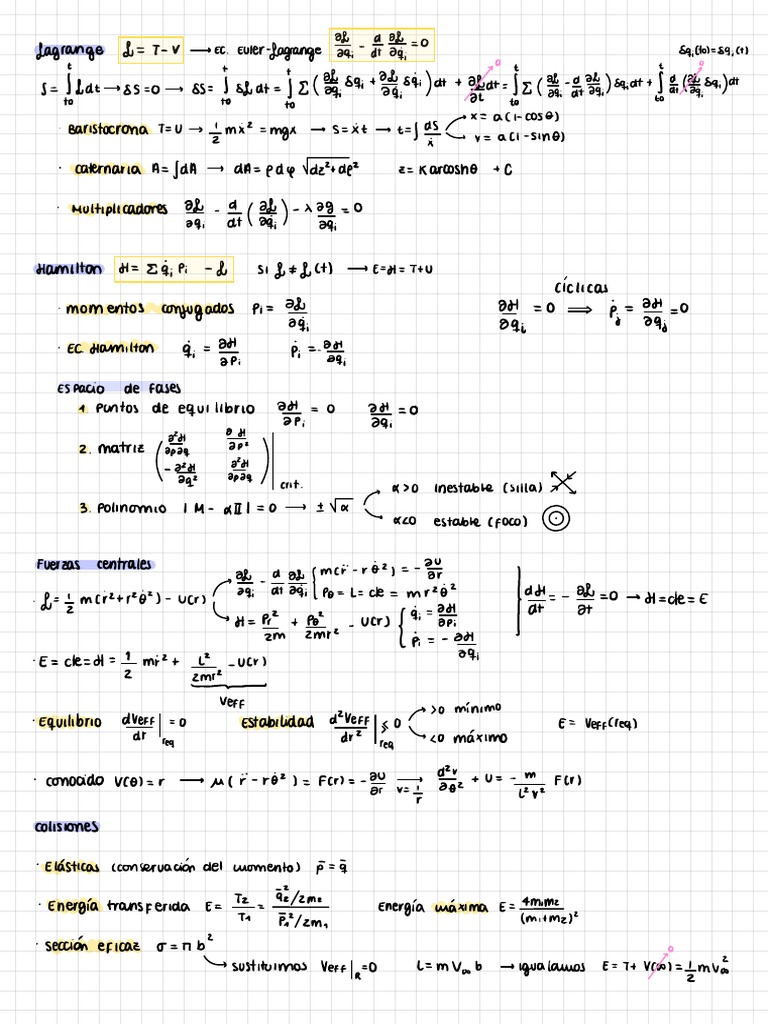 Lagrange ℒ = T - V → EC. Euler-Lagrange ∂ℒ/∂qᵢ - d/dt ∂ℒ/∂q̇ᵢ = 0 δqᵢ(t₀) = δqᵢ(t)
S = ∫_{t₀}^{t} ℒdt → δS = 0 → δS = ∫_{t₀}^{t} δℒdt = ∫_{t₀}^{t} Σ(∂ℒ/∂qᵢ δqᵢ + ∂ℒ/∂q̇ᵢ δq̇ᵢ)dt + ∂ℒ/∂t dt 0 = ∫_{t₀}^{t} Σ(∂ℒ/∂qᵢ - d/dt ∂ℒ/∂q̇ᵢ)δqᵢdt + ∫_{t₀}^{t} d/dt(∂ℒ/∂q̇ᵢ δqᵢ)dt 0
· Baristocrona T=U → 1/2 mẋ² = mgx → S = ẋt → t = ∫dS/ẋ x = a(1-cosθ)
v = a(1-sinθ)
· caternaria A = ∫dA → dA = ρdφ √(dz²+dρ²) z = k arcoshθ + C
· Multiplicadores ∂ℒ/∂qᵢ - d/dt(∂ℒ/∂q̇ᵢ) - λ ∂g/∂qᵢ = 0
Hamilton H = Σq̇ᵢ pᵢ - ℒ Si ℒ ≠ ℒ(t) → E = H = T+U
cíclicas
· momentos conjugados pᵢ = ∂ℒ/∂q̇ᵢ ∂H/∂qᵢ = 0 ⟹ ṗⱼ = ∂H/∂qⱼ = 0
· EC. Hamilton q̇ᵢ = ∂H/∂pᵢ ṗᵢ = -∂H/∂qᵢ
Espacio de fases
1. Puntos de equilibrio ∂H/∂pᵢ = 0 ∂H/∂qᵢ = 0
2. matriz (∂²H/∂p∂q ∂H/∂p²
-∂²H/∂q² ∂²H/∂p∂q)| crit.
3. Polinomio |M - α𝕀| = 0 → ±√α α>0 inestable (silla)
α<0 estable (foco)
Fuerzas centrales
· ℒ = 1/2 m(ṙ²+r²θ̇²) - U(r) ∂ℒ/∂qᵢ - d/dt ∂ℒ/∂q̇ᵢ { m(r̈ - rθ̇²) = -∂U/∂r
pθ = L = cte = mr²θ̇²
H = pᵣ²/2m + pθ²/2mr² - U(r) { q̇ᵢ = ∂H/∂pᵢ
ṗᵢ = -∂H/∂qᵢ
dH/dt = -∂ℒ/∂t = 0 → H = cte = E
· E = cte = H = 1/2 mṙ² + L²/2mr² - U(r)
Veff
· Equilibrio dVeff/dr |req = 0 Estabilidad d²Veff/dr² |req ≶ 0 >0 mínimo
<0 máximo
E = Veff(req)
· conocido V(θ) = r → μ(r̈ - rθ̇²) = F(r) = -∂U/∂r → v=1/r d²v/∂θ² + U = -m/L²v² F(r)
colisiones
· Elásticas (conservación del momento) p̄ = q̄
· Energía transferida E = T₂/T₁ = (q̄₂²/2m₂)/(p̄₁²/2m₁) Energía máxima E = 4m₁m₂/(m₁+m₂)²
· sección eficaz σ = πb²
sustituimos Veff|R = 0 L = mV∞b → igualamos E = T + V(∞) 0 = 1/2 mv∞²